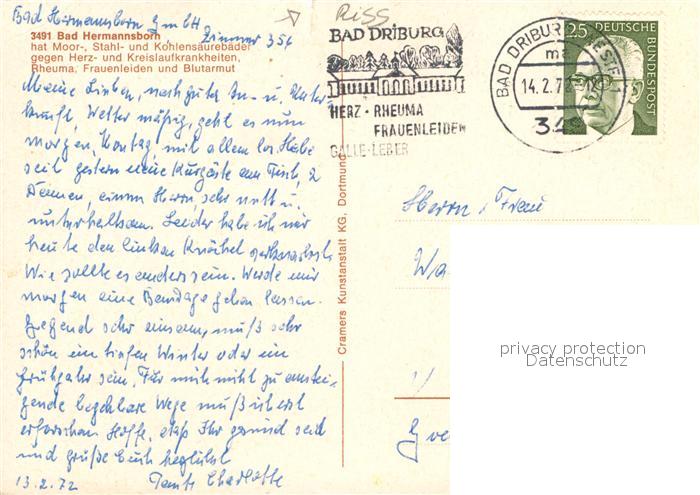 Bad Hermannsborn GmbH
Zimmer 356
Riss
3491 Bad Hermannsborn
hat Moor-, Stahl- und Kohlensäurebäder
gegen Herz- und Kreislaufkrankheiten,
Rheuma, Frauenleiden und Blutarmut
Meine Lieben, nach guter An- u. Unter-
kunft, Wetter mäßig, geht es nun
morgen, Montag mit allem los. Habe
seit gestern neue Kurgäste am Tisch, 2
Damen, einen Herrn, sehr nett u.
unterhaltsam. Leider habe ich mir
heute den linken Knöchel verknackst.
Wie sollte es anders sein. Werde mir
morgen eine Bandage geben lassen.
Gegend sehr einsam, muß sehr
schön im tiefen Winter oder im
Frühjahr sein. Für mich nicht zu anstei-
gende begehbare Wege muß ich erst
erforschen. Hoffe, daß Ihr gesund seid
und grüße Euch herzlichst
13.2.72 Tante Charlotte
Cramers Kunstanstalt KG, Dortmund
BAD DRIBURG
HERZ · RHEUMA
FRAUENLEIDEN
GALLE-LEBER
BAD DRIBURG
14.2.72
349
25 DEUTSCHE
BUNDESPOST
Herrn u. Frau
privacy protection
Datenschutz